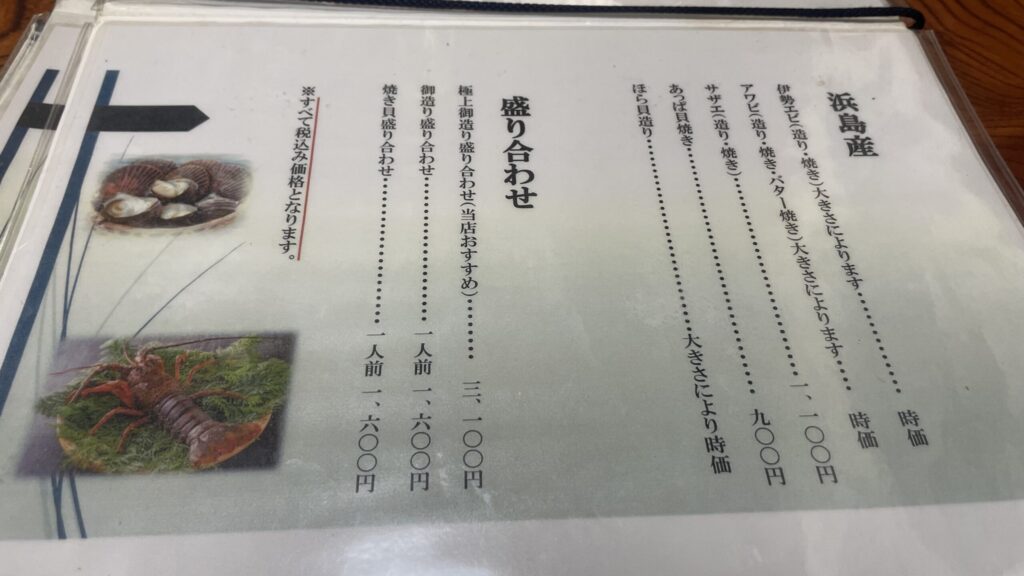 浜島産
伊勢エビ(造り・焼き)大きさによります………時価
アワビ(造り・焼き・バター焼き)大きさによります……時価
サザエ(造り・焼き)………………一、一〇〇円
あっぱ貝焼き………………………九〇〇円
ほら貝造り………………大きさにより時価
盛り合わせ
極上御造り盛り合わせ(当店おすすめ)………三、一〇〇円
御造り盛り合わせ………………一人前 一、六〇〇円
焼き貝盛り合わせ………………一人前 一、六〇〇円
※すべて税込み価格となります。